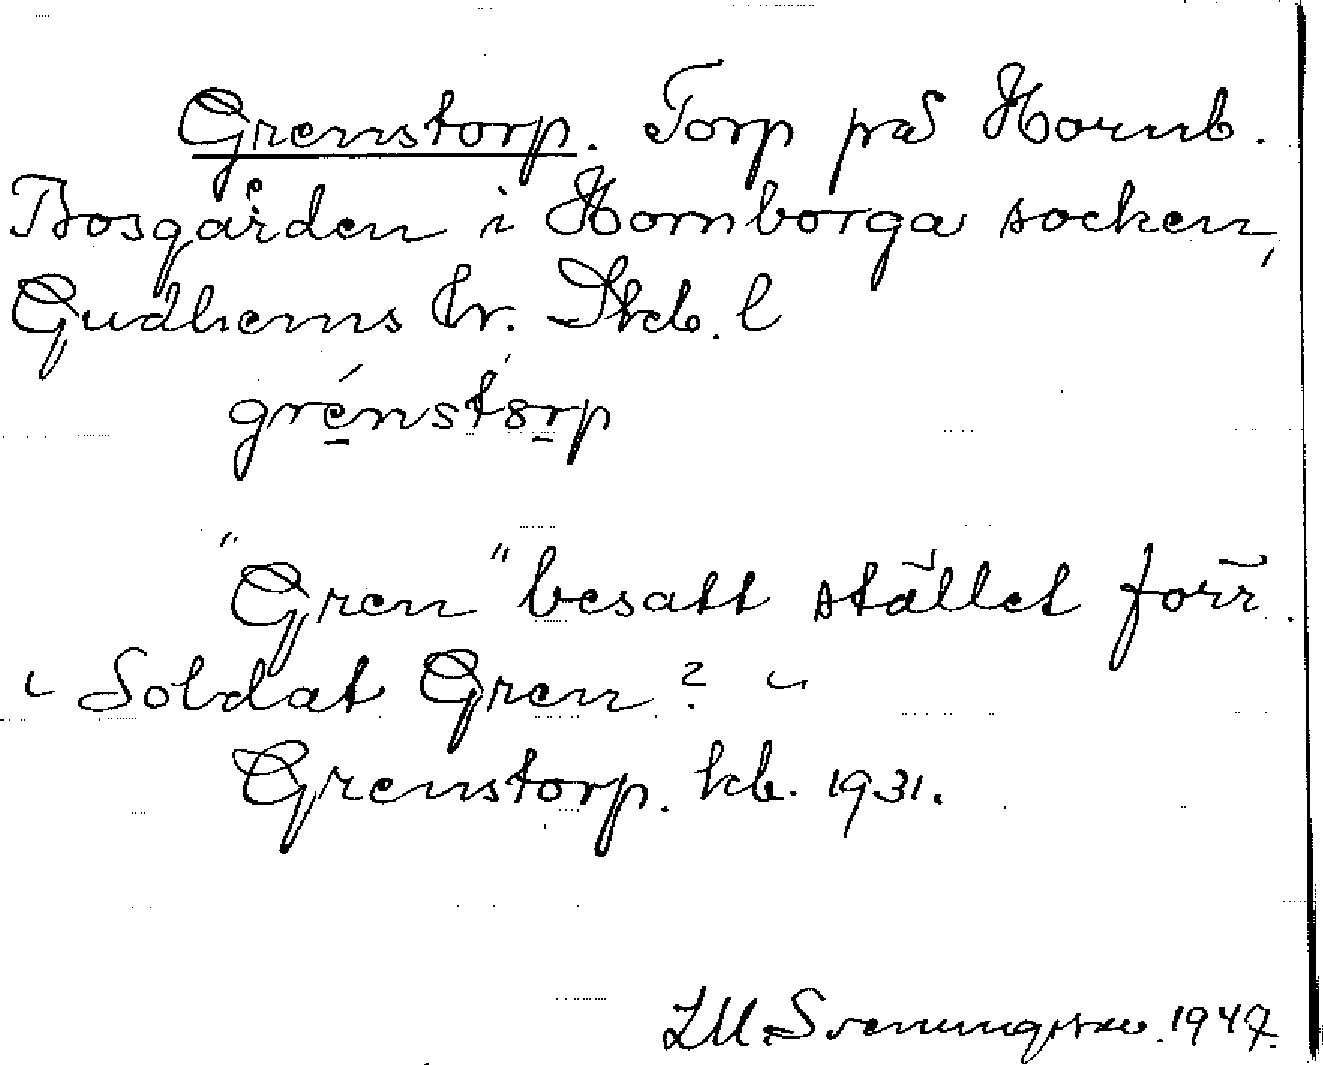 Grenstorp. Torp på Hornb.
Bosgården i Hornborga socken,
Gudhems hr. Skb. l
grénstorp
"Gren" besatt stället förr.
Soldat Gren?
Grenstorp. kb. 1931.
LM. Svenungsson. 1947.